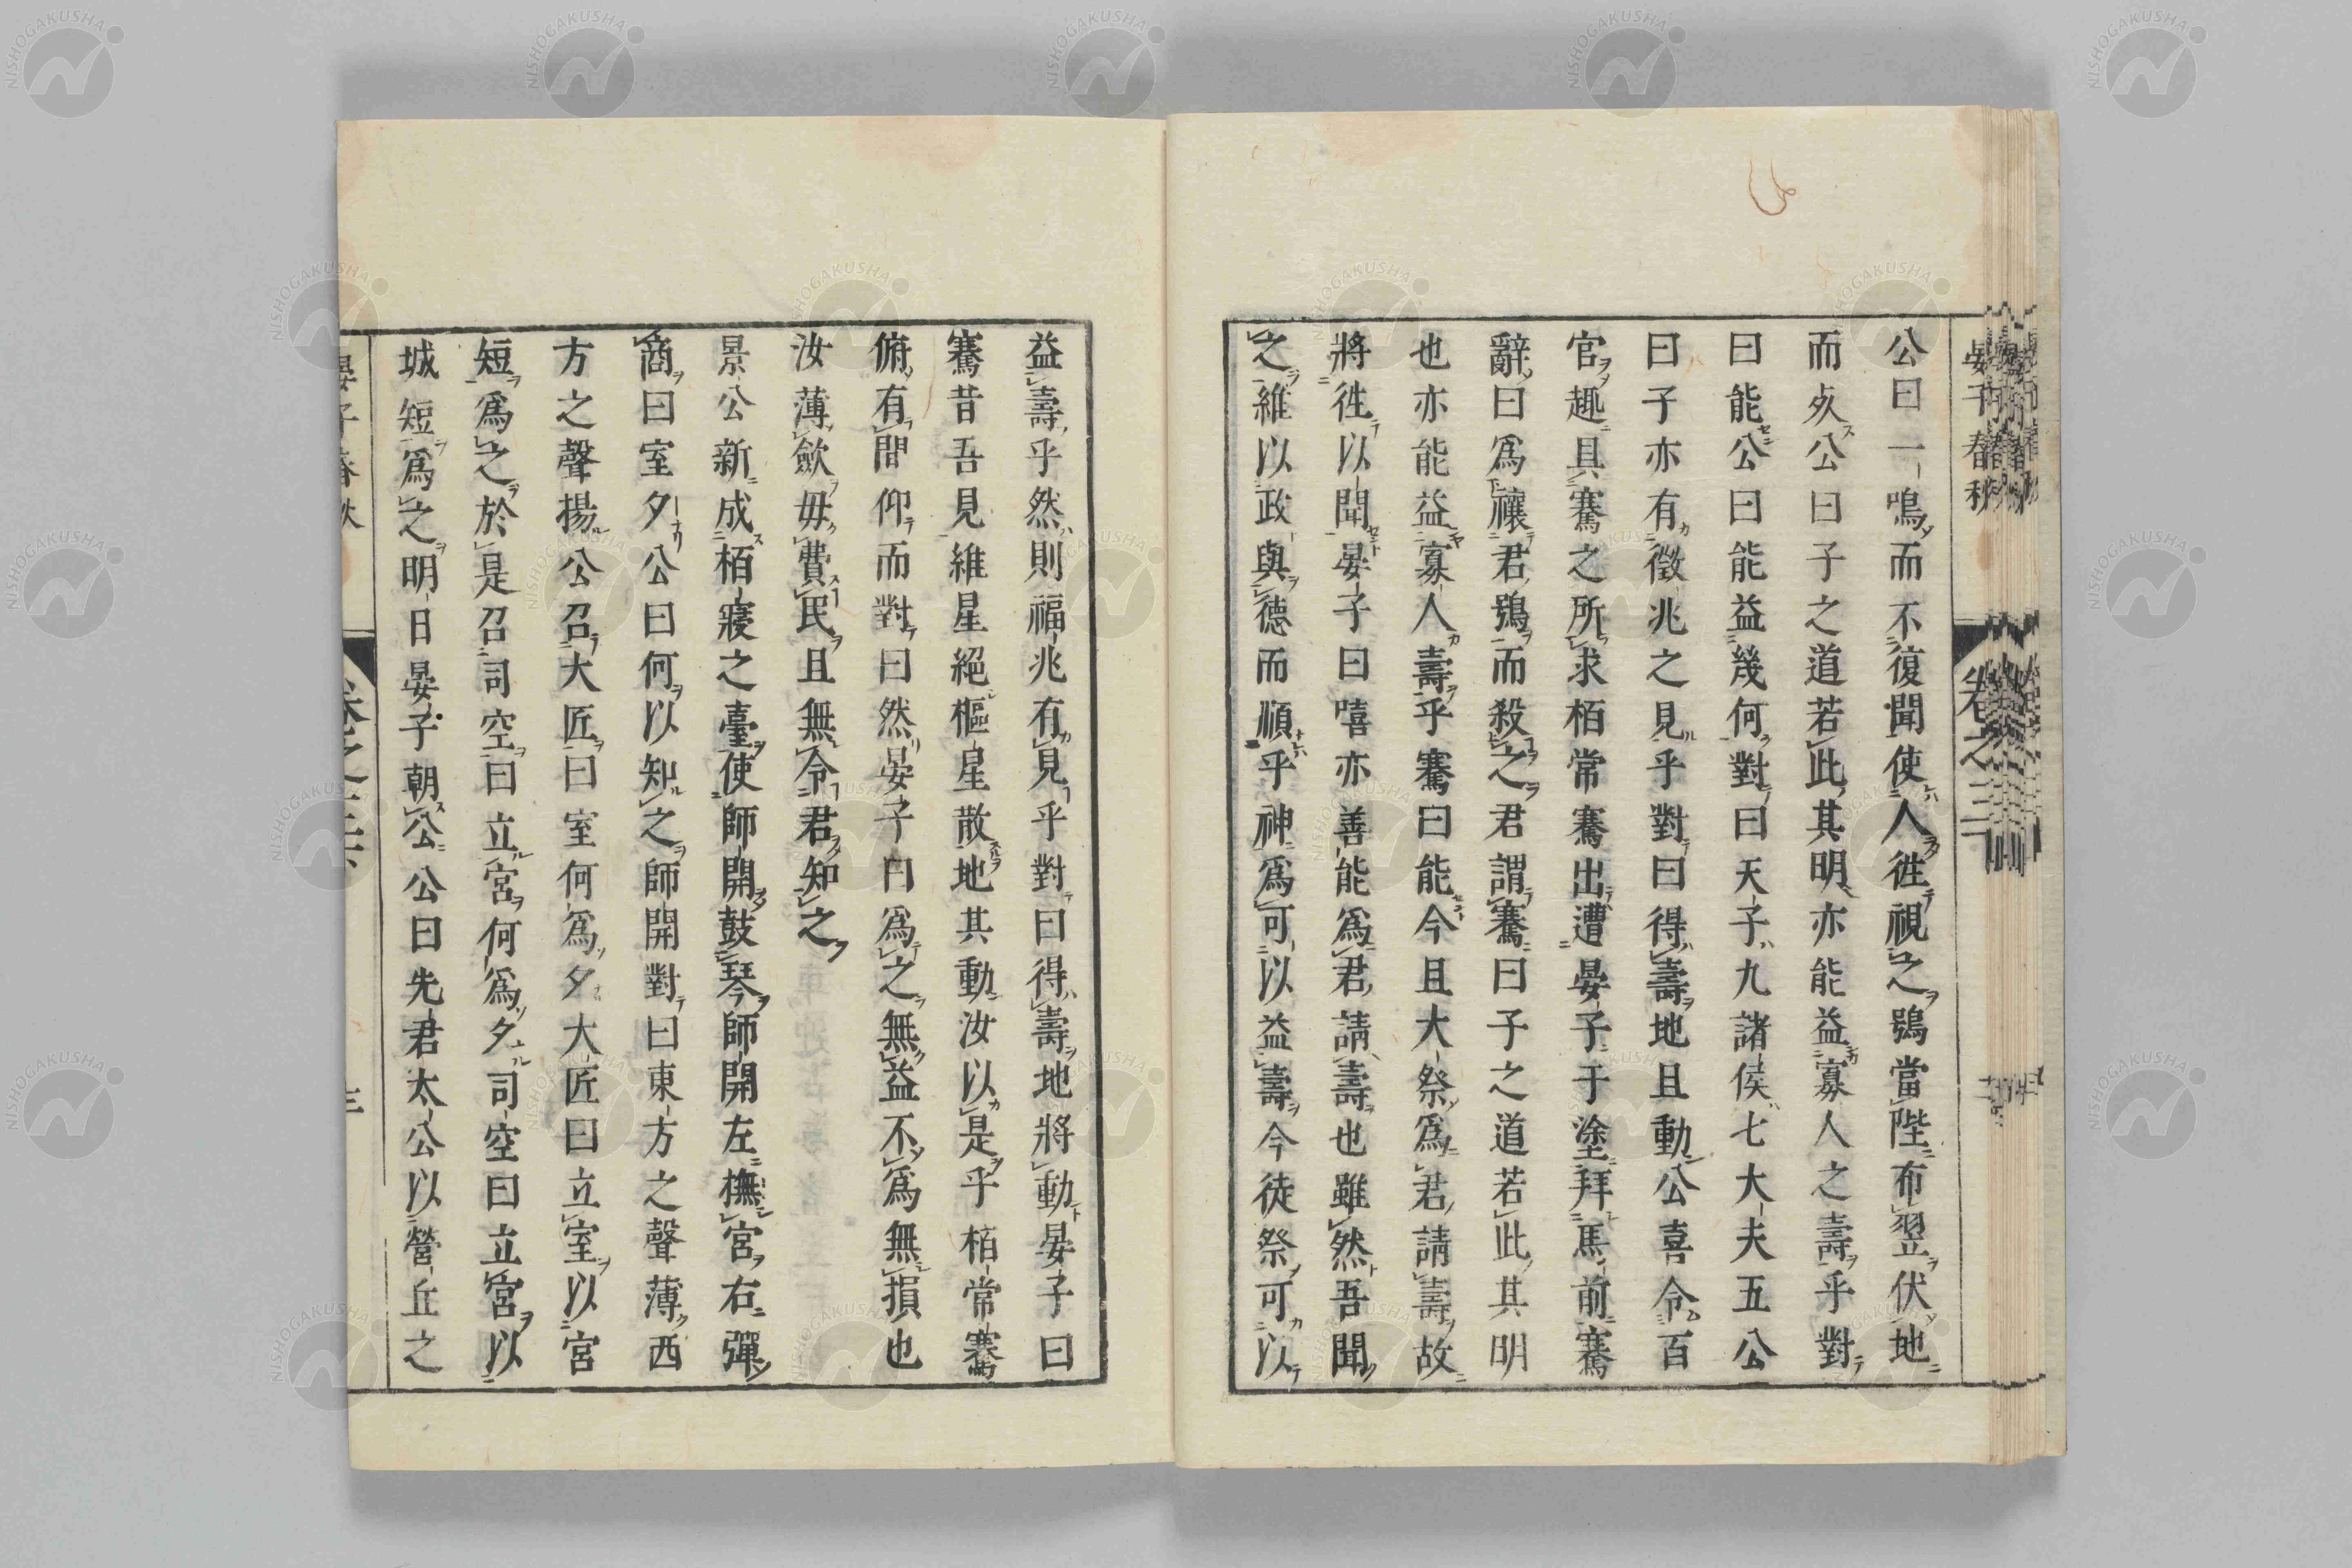 公曰一鳴而不復聞使人徃視之鴞當陛布翌伏地
而死公曰子之道若此其明亦能益寡人之壽乎對
曰能公曰能益幾何對曰天子九諸侯七大夫五公
曰子亦有徵兆之見乎對曰得壽地且動公喜令百
官趣具騫之所求栢常騫出遭晏子于塗拜馬前騫
辭曰爲禳君鴞而殺之君謂騫曰子之道若此其明
也亦能益寡人壽乎騫曰能今且大祭爲君請壽故
將徃以聞晏子曰嘻亦善能爲君請壽也雖然吾聞
之維以政與德而順乎神爲可以益壽今徒祭可以
益壽乎然則福兆有見乎對曰得壽地將動晏子曰
騫昔吾見維星絕樞星散地其動汝以是乎栢常騫
俯有間仰而對曰然晏子曰爲之無益不爲無損也
汝薄斂毋費民且無令君知之
景公新成栢寢之臺使師開鼓琴師開左撫宮右彈
商曰室夕公曰何以知之師開對曰東方之聲薄西
方之聲揚公召大匠曰室何爲夕大匠曰立室以宮
短爲之於是召司空曰立宮何爲夕司空曰立宮以
城短爲之明日晏子朝公公曰先君太公以營丘之
晏子春秋
卷之三
晏子春秋
卷之六
三
NISHOGAKUSHA